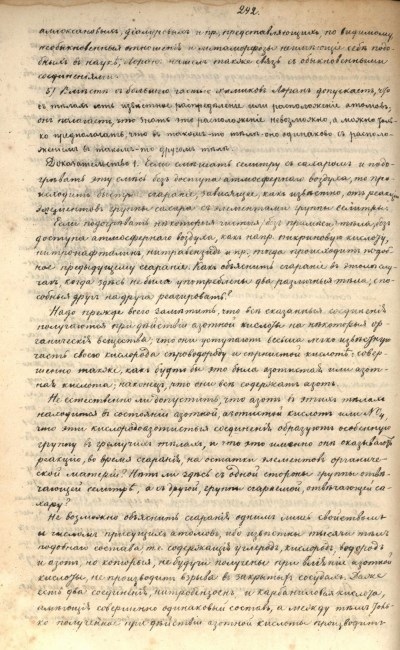 242.
аллоксановымъ, діалуровымъ и пр., представляющихъ, по видимому,
необыкновенныя отношенія и метаморфозы неимѣющія себѣ подо-
бныхъ въ наукѣ, Лоранъ нашелъ также связь съ обыкновенными
соединеніями.
5) Вмѣстѣ съ большею частью химиковъ Лоранъ допускаетъ, что
въ тѣлахъ есть извѣстное распредѣленіе или расположеніе атомовъ,
онъ полагаетъ, что знать это расположеніе невозможно, а можно толь-
ко предполагать, что въ такомъ-то тѣлѣ оно одинаково съ располо-
женіемъ въ такомъ-то другомъ тѣлѣ.
Доказательство 1. Если смѣшать селитру съ сахаромъ и подо-
грѣвать эту смѣсь безъ доступа атмосфернаго воздуха, то про-
исходитъ быстрое сгараніе, зависящее, какъ извѣстно, отъ реакціи
элементовъ группы сахара съ элементами группы селитры.
Если подогрѣвать некоторыя чистыя, безъ примѣси тѣла, безъ
доступа атмосфернаго воздуха, какъ напр. пикриновую кислоту,
нитронафталинъ, нитробензидъ и пр., тогда происходитъ подоб-
ное предыдущему сгараніе. Какъ объяснить сгараніе въ этомъ слу-
чаѣ когда здѣсь не были употреблены два различныя тѣла, спо-
собныя другъ на друга реагировать?
Надо прежде всего замѣтить, что всѣ сказанныя соединенія
получаются при дѣйствіи азотной кислоты на нѣкоторыя ор-
ганическія вещества, что они уступаютъ весьма легко извѣстную
часть своего кислорода сѣроводороду и сѣрнистой кислотѣ, совер-
шенно также, какъ будто бы это была азотистая или азот-
ная кислота; наконецъ, что они всѣ содержатъ азотъ.
Не естественно ли допустить, что азотъ въ этихъ тѣлахъ
находится въ состояніи азотной, азотистой кислотъ или
что эти кислородоазотистыя соединенія образуютъ особенную
группу въ тѣлахъ, и что это именно они оказываютъ
реакцію, во время сгаранія, на остатки элементовъ органиче-
ской матеріи? Нѣтъ ли здѣсь съ одной стороны группы отвѣ-
чающей селитрѣ, а съ другой, группы сгараемой, отвѣчающей са-
хару?
Не возможно объяснить сгаранія однимъ лишь свойствомъ
и числомъ присущихъ атомовъ, ибо извѣстны тысячи тѣлъ
подобнаго состава, т.е. содержащихъ углеродъ, кислородъ, водородъ
и азотъ, но которыя, не будучи получены при вліяніи азотной
кислоты, не производятъ взрыва въ закрытыхъ сосудахъ. Даже
есть два соединенія, нитробензоенъ и карбаниловая кислота,
имѣющія совершенно одинаковый составъ, а между тѣмъ толь-
ко полученное при дѣйствіи азотной кислоты производитъ